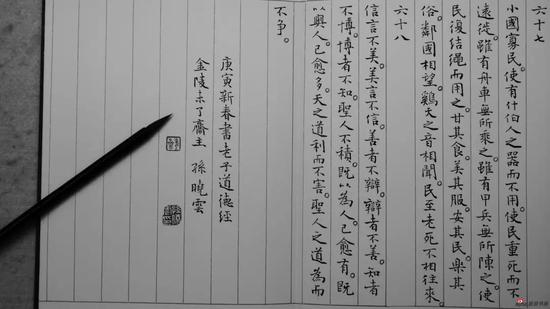 六十七
小國寡民。使有什伯人之器而不用。使民重死而不
遠徙。雖有舟車無所乘之。雖有甲兵無所陳之。使
民復結繩而用之。甘其食。美其服。安其民。樂其
俗。鄰國相望。鷄犬之音相聞。民至老死不相往來。
六十八
信言不美。美言不信。善者不辯。辯者不善。知者
不博。博者不知。聖人不積。既以為人。己愈有。既
以與人。己愈多。天之道利而不害。聖人之道為而
不争。
庚寅新春書老子道德經
金陵未了齋主 孫曉雲